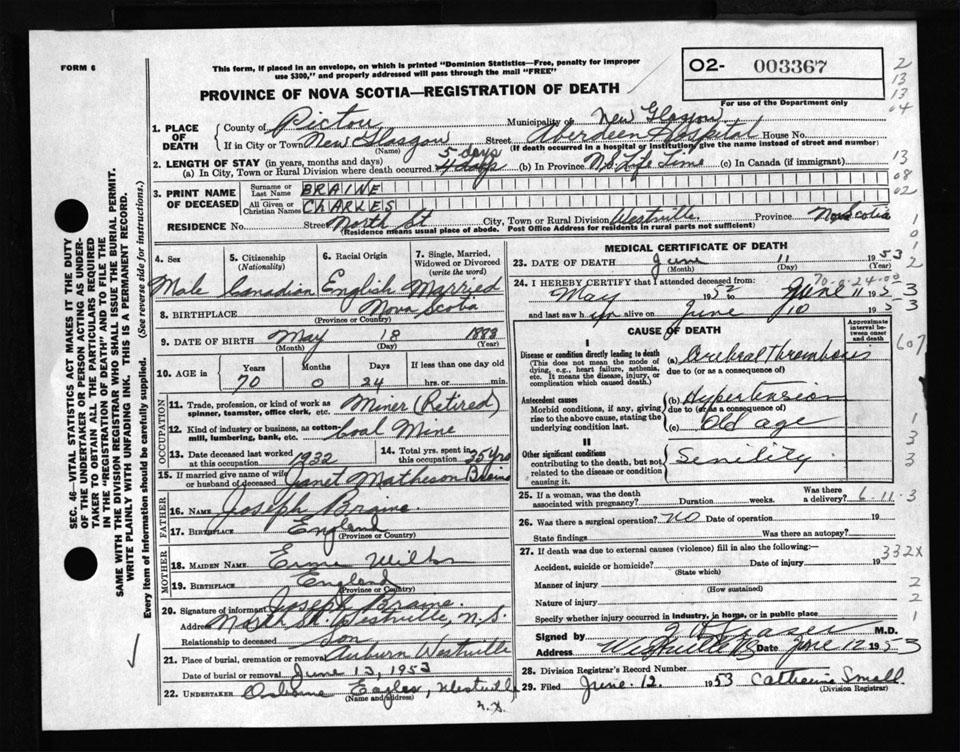 FORM 6
This form, if placed in an envelope, on which is printed "Dominion Statistics—Free, penalty for improper
use $300," and properly addressed will pass through the mail "FREE"
PROVINCE OF NOVA SCOTIA—REGISTRATION OF DEATH
O2- 003367
For use of the Department only
2
13
13
04
1. PLACE OF DEATH
County of Pictou Municipality of New Glasgow
If in City or Town New Glasgow Street Aberdeen Hospital House No.
(Name) (If death occurred in a hospital or institution, give the name instead of street and number)
2. LENGTH OF STAY (in years, months and days)
(a) In City, Town or Rural Division where death occurred 5 days (b) In Province N.S. Life Time (c) In Canada (if immigrant)
13
08
02
3. PRINT NAME OF DECEASED
Surname or Last Name BRAINE
All Given or Christian Names CHARLES
RESIDENCE No. Street North St City, Town or Rural Division Westville Province Nova Scotia
(Residence means usual place of abode. Post Office Address for residents in rural parts not sufficient)
4. Sex Male
5. Citizenship (Nationality) Canadian
6. Racial Origin English
7. Single, Married, Widowed or Divorced (write the word) Married
8. BIRTHPLACE Nova Scotia
(Province or Country)
9. DATE OF BIRTH May 8 1883
(Month) (Day) (Year)
10. AGE in Years 70 Months 0 Days 24 If less than one day old hrs. or min.
OCCUPATION
11. Trade, profession, or kind of work as spinner, teamster, office clerk, etc. Miner (Retired)
12. Kind of industry or business, as cotton-mill, lumbering, bank, etc. Coal Mine
13. Date deceased last worked at this occupation 1932
14. Total yrs. spent in this occupation 35 yrs
15. If married give name of wife or husband of deceased Janet Matheson Braine
FATHER
16. NAME Joseph Braine
17. BIRTHPLACE England
(Province or Country)
MOTHER
18. MAIDEN NAME
19. BIRTHPLACE England
(Province or Country)
20. Signature of informant Joseph Braine.
Address North St. Westville, N.S.
Relationship to deceased Son
21. Place of burial, cremation or removal Auburn Westville
Date of burial or removal June 13, 1953
22. UNDERTAKER Eagles, Westville
(Name and address) N.S.
MEDICAL CERTIFICATE OF DEATH
23. DATE OF DEATH June 11 1953
(Month) (Day) (Year)
24. I HEREBY CERTIFY that I attended deceased from:
70-0-24-00
June 11 1953
and last saw him alive on June 10 1953
CAUSE OF DEATH
Approximate interval between onset and death
I
Disease or condition directly leading to death
(This does not mean the mode of dying, e.g., heart failure, asthenia, etc. It means the disease, injury, or complication which caused death.)
(a) Cerebral Thrombosis
due to (or as a consequence of)
Antecedent causes
Morbid conditions, if any, giving rise to the above cause, stating the underlying condition last.
(b) Hypertension
due to (or as a consequence of)
(c) Old age
II
Other significant conditions
contributing to the death, but not related to the disease or condition causing it.
Senility
25. If a woman, was the death associated with pregnancy? Duration weeks. Was there a delivery?
6-11-3
26. Was there a surgical operation? NO Date of operation 19
State findings Was there an autopsy?
27. If death was due to external causes (violence) fill in also the following:—
332X
Accident, suicide or homicide? Date of injury 19
(State which)
Manner of injury
(How sustained)
Nature of injury
Specify whether injury occurred in industry, in home, or in public place
Signed by M.D.
Address Westville NS Date June 12 1953
28. Division Registrar's Record Number
29. Filed June 12. 1953 Catherine Small.
(Division Registrar)
SEC. 46—VITAL STATISTICS ACT MAKES IT THE DUTY
OF THE UNDERTAKER OR PERSON ACTING AS UNDER-
TAKER TO OBTAIN ALL THE PARTICULARS REQUIRED
IN THE "REGISTRATION OF DEATH" AND TO FILE THE
SAME WITH THE DIVISION REGISTRAR WHO SHALL ISSUE THE BURIAL PERMIT.
WRITE PLAINLY WITH UNFADING INK. THIS IS A PERMANENT RECORD.
Every item of information should be carefully supplied. (See reverse side for instructions.)